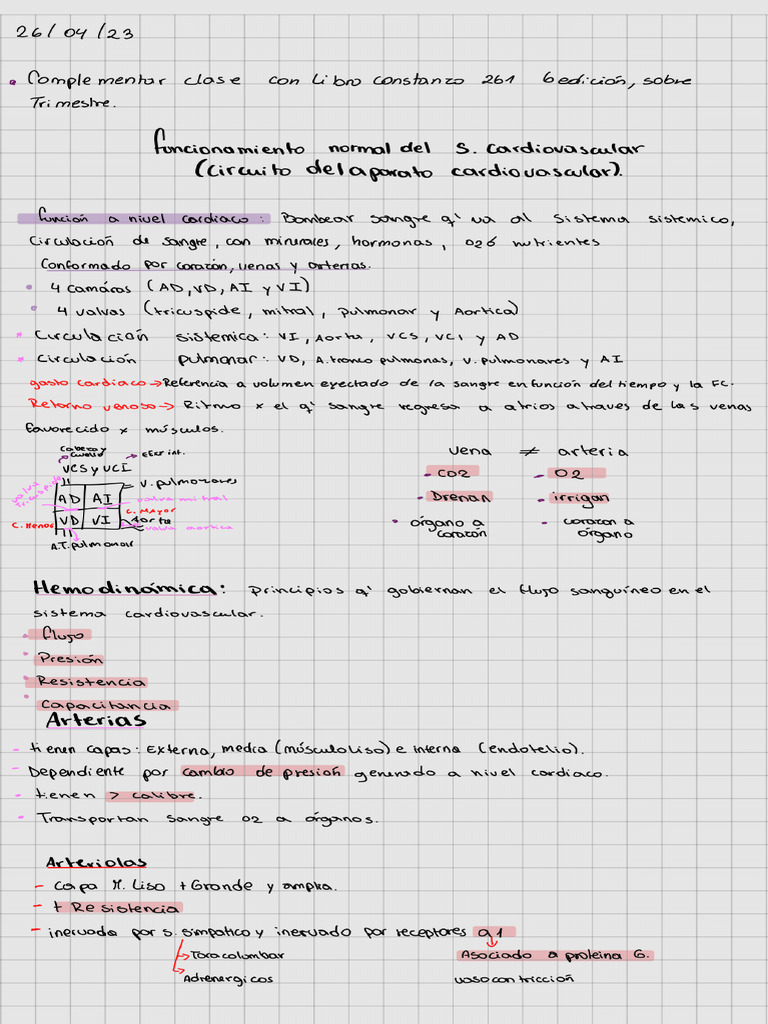 26/04/23
• Complementar clase con Libro Constanzo 261 6 edición, sobre
Trimestre.
Funcionamiento normal del S. Cardiovascular
(Circuito del aparato cardiovascular).
Función a nivel cardiaco: Bombear sangre q' va al Sistema sistemico,
Circulación de sangre, con minerales, hormonas, O2 ó nutrientes
Conformado por corazón, venas y arterias.
• 4 camáras (AD, VD, AI y VI)
• 4 valvas (tricuspide, mitral, pulmonar y Aortica)
* Circulación sistemica: VI, Aorta, VCS, VCI y AD
* Circulación pulmonar: VD, A. tronco pulmonas, V. pulmonares y AI
gasto cardiaco → Referencia a volumen eyectado de la sangre en función del tiempo y la FC.
Retorno venoso → Ritmo x el q' sangre regresa a atrios a traves de las venas
favorecido x músculos.
cabeza y cuello
→ Ext inf.
VCS y VCI
valva tricuspide
V. pulmonares
AD AI
valva mitral
C. Menor
VD VI
C. Mayor
Aorta
valva aortica
A.T. pulmonar
vena ≠ arteria
• CO2 - O2
• Drenan • irrigan
• órgano a corazón • corazon a órgano
Hemodinámica: Principios q' gobiernan el flujo sanguíneo en el
sistema cardiovascular.
• flujo
• Presión
• Resistencia
• Capacitancia
Arterias
- tienen capas: Externa, media (músculo liso) e interna (endotelio).
- Dependiente por cambio de presión generado a nivel cardiaco.
- tienen > calibre.
- Transportan Sangre O2 a órganos.
Arteriolas
- Capa M. Liso + Grande y amplia.
- + Resistencia
- inervada por s. simpatico y inervado por receptores α1
→ Toracolumbar
Asociado a proteina G.
→ Adrenergicos
vasocontricción